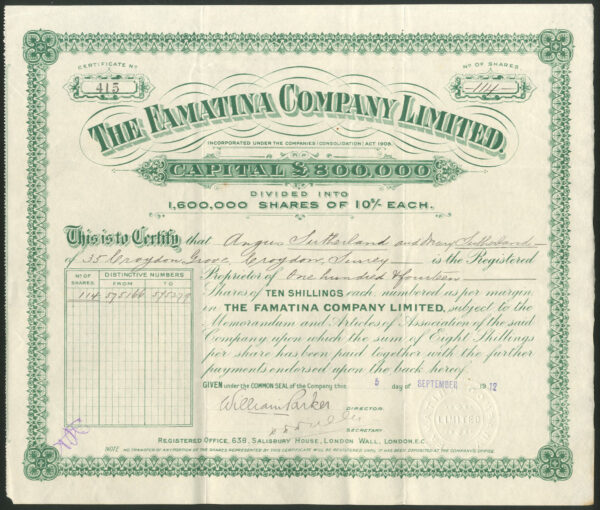 CERTIFICATE No
415
No OF SHARES
114
THE FAMATINA COMPANY LIMITED.
INCORPORATED UNDER THE COMPANIES (CONSOLIDATION) ACT 1908.
CAPITAL £800,000
DIVIDED INTO
1,600,000 SHARES OF 10/- EACH.
This is to Certify that Angus Sutherland and Mary Sutherland
of 35 Croydon Grove, Croydon, Surrey is the Registered
Proprietor of One hundred & fourteen
Shares of TEN SHILLINGS each, numbered as per margin
in THE FAMATINA COMPANY LIMITED, subject to the
Memorandum and Articles of Association of the said
Company upon which the sum of Eight Shillings
per share has been paid together with the further
payments endorsed upon the back hereof.
No OF SHARES
DISTINCTIVE NUMBERS
FROM TO
114 575166 575279
GIVEN under the COMMON SEAL of the Company this 5 day of SEPTEMBER 1912
William Parker
DIRECTOR.
SECRETARY.
LIMITED
REGISTERED OFFICE, 638, SALISBURY HOUSE, LONDON WALL, LONDON, E.C.
NOTE NO TRANSFER OF ANY PORTION OF THE SHARES REPRESENTED BY THIS CERTIFICATE WILL BE REGISTERED UNTIL IT HAS BEEN DEPOSITED AT THE COMPANY'S OFFICE.